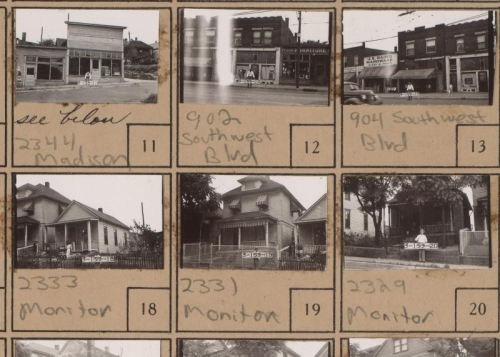 see below
2344
Madison
11
902
Southwest
Blvd
12
904 Southwest
Blvd
13
2333
Monitor
18
2331
Monitor
19
2329
Monitor
20